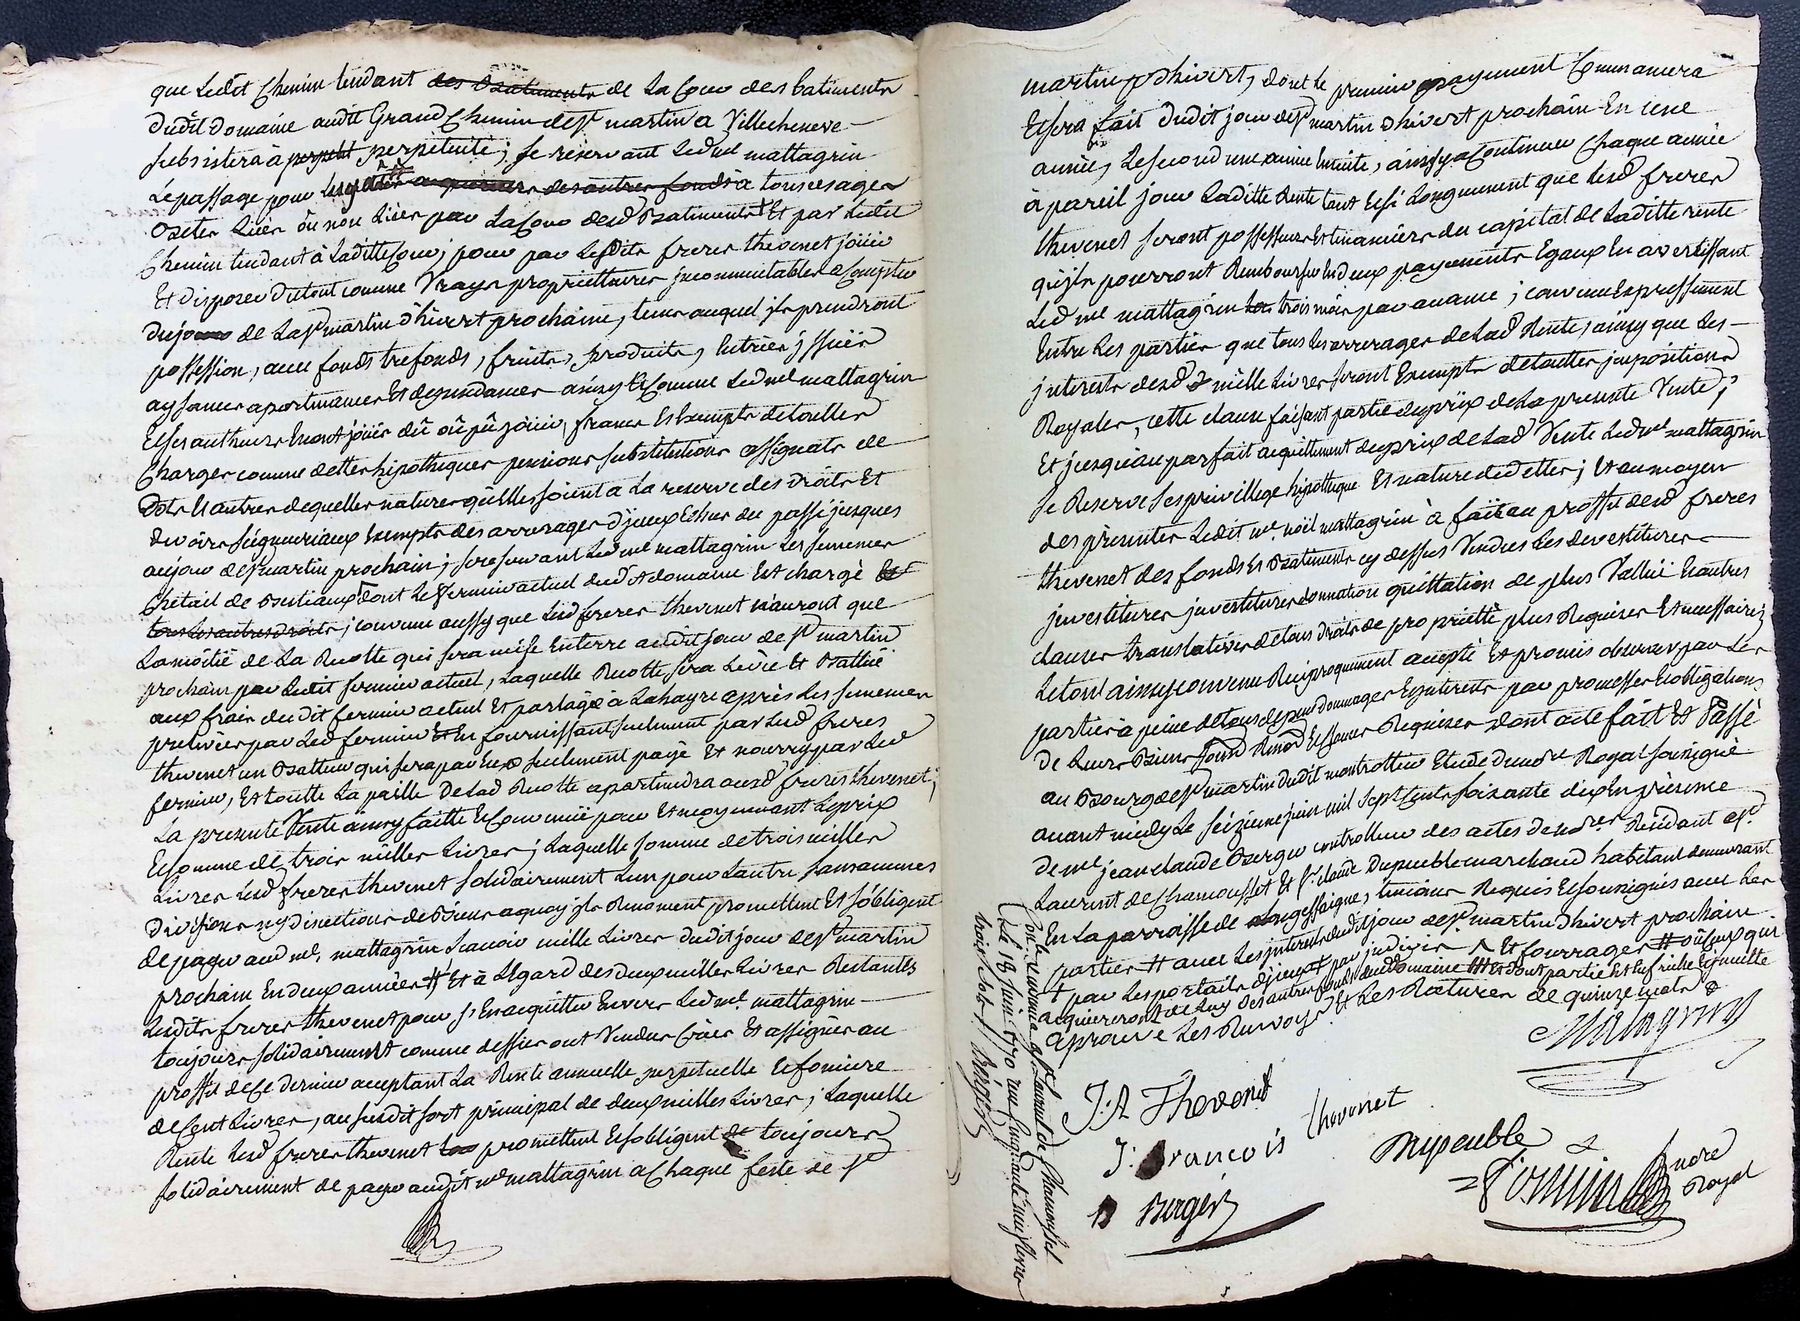 que ledit chemin tendant des batiments de la cour des batiments
dudit domaine audit Grand chemin de st martin a villecheneve
subsistera à perpetuité; se réservant ledt me mattagrin
le passage pour des autres fonds à tous usages
betes liées ou non liées par la cour desd batiments et par ledit
chemin tendant à laditte cour; pour par lesdits freres thevenet joüir
et disposer dutout comme vrays propriettaires incommutables a compter
du jour de la st martin d'hivert prochaine, tems auquel ils prendront
possession, avec fonds trefonds, fruits, produits, entrées issües
aysances apartenances et dependances ainsy et comme ledt me mattagrin
et ses autheurs en ont joüis dû ou pû joüir, francs et exempts de touttes
charges comme dettes hipotheques pensions substitutions assignats de
dots et autres de quelles natures qu'elles soient a la reserve des droits et
devoirs seigneuriaux exempts des arrerages d'jceux et sur du passé jusques
aujour de st martin prochain; se reservant ledt me mattagrin les semences
chetail de bestiaux dont le fermier actuel dudt domaine est chargé et
tous les autres droits; convenu aussy que lesd freres thevenet n'auront que
la moitié de la recolte qui sera mise en terre audit jour de st martin
prochain par ledit fermier actuel, laquelle recolte sera levée et battüe
aux frais dudit fermier actuel et partagée à la hayre après les semences
prelevées par led fermier et en fournissant seulement par lesd freres
thevenet un batteur qui sera par eux seulement payé et nourry par led
fermier, et toutte la paille de lad recolte apartiendra auxd freres thevenet;
la presente vente ainsy faitte et convenüe pour et moyennant le prix
et somme de trois milles livres; laquelle somme de trois milles
livres lesd freres thevenet solidairement l'un pour l'autre sans aucunes
divisions ny discutions de biens a quoy ils renoncent promettent et s'obligent
de payer aud me mattagrin scavoir mille livres dudit jour de st martin
prochain en deux années # et à l'egard des deux milles livres restantes
lesdits freres thevenet pour s'en acquitter envers ledt me mattagrin
toujours solidairement comme dessus ont vendus créés et assignés au
proffit de ce dernier acceptant la rente annuelle perpetuelle et fonciere
de cent livres, au susdit sort principal de deux milles livres; laquelle
rente lesd freres thevenet promettent et s'obligent toujours
solidairement de payer audit me mattagrin a chaque feste de st
martin d'hivert, dont le premier payement commancera
et sera fait dudit jour de st martin d'hivert prochain en une
année, le second une année ensuite, ainsy a continuer chaque année
à pareil jour laditte rente tant et si longuement que lesd freres
thevenet seront possesseurs et tenanciers du capital de laditte rente
qu'ils pourront rembourser en deux payements egaux en avertissant
ledt me mattagrin trois mois par avance; convenu expressement
entre les parties que tous les arrerages de lad rente, ainsy que les
interests desd milles livres seront exempts de touttes impositions
royales, cette clause faisant partie du prix de la presente vente;
et jusqu'au parfait acquittement du prix de lad vente ledt me mattagrin
se reserve ses privillege hipotheque et nature de dettes; et au moyen
des présentes ledit me noël mattagrin à fait au proffit desd freres
thevenet des fonds et batiments cy dessus vendus les devestitures
jnvestitures donnation quittation de plus vallüe et autres
clauses translatives de tous droits de propriété plus requises et necessaires
le tout ainsy convenu reciproquement accepté et promis observer par les
parties à peine de tous depens dommages et interets par promesses et obligations
de leurs biens renonc et clauses requises dont acte fait et passé
au bourg de st martin dudit montrottier etude du nore royal soussigné
avant midy le seizieme juin mil sept cents soixante dix en présence
de me jean claude berger controlleur des actes de nores residant a st
laurent de chamousset et sr claude dupeuble marchand habitant demeurant
en la parroisse de longessaigne, temoins requis et soussignés avec les
parties # avec les interests dudit jour de st martin d'hivert prochain
+ par les portails d'jceux par indivis et fourrages # ou ceux qui
acquiereront de luy des autres fonds dud domaine et dont partie est en friche
aprouve les renvoys et les ratures de quinze mots
Matagrin
J: A Thevenet
J: francois thevenet
Dupeuble
Berger
nore
Royal
Controllé et insinué a st laurent de Chamousset
le 18 juin 1770 reçu cinquante neuf livres
trois sols. Berger